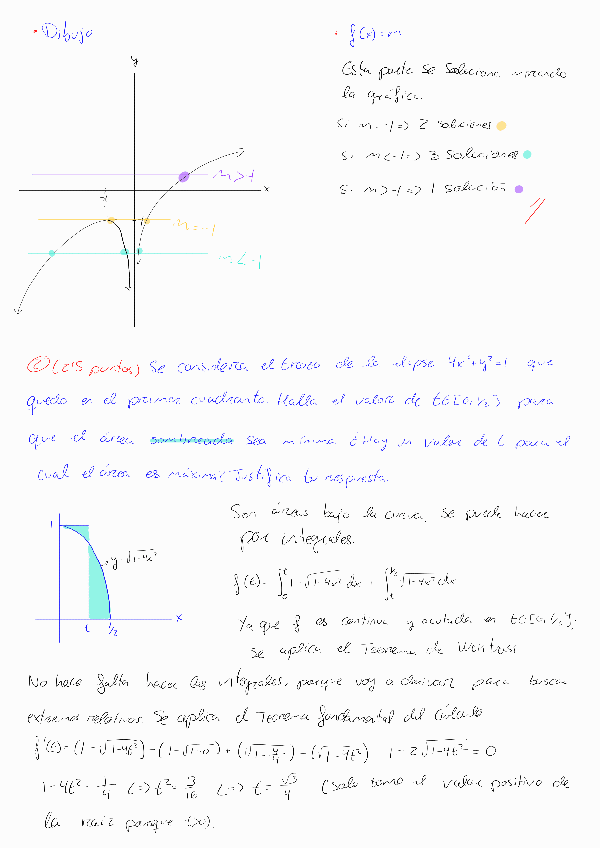 * Dibujo
* f(x)=m
y
Esta parte se soluciona mirando
la gráfica.
Si m=-1=> 2 soluciones
Si m<-1=> 3 soluciones
Si m>-1=> 1 solución
m>-1
x
-1
m=-1
m<-1
(2'5 puntos) Se considera el trozo de la elipse 4x²+y²=1 que
queda en el primer cuadrante. Halla el valor de t∈[0,1/2] para
que el área sombreada sea mínima ¿Hay un valor de t para el
cual el área es máxima? Justifica tu respuesta.
Son áreas bajo la curva, se puede hacer
por integrales.
1
y=√1-4x²
f(t)= ∫₀ᵗ 1-√1-4x² dx + ∫ₜ^1/2 √1-4x² dx
x
t
1/2
Ya que f es continua y acotada en t∈[0,1/2],
se aplica el Teorema de
No hace falta hacer las integrales, porque voy a derivar para buscar
extremos relativos. Se aplica el Teorema fundamental del Cálculo
f'(t)=(1-√1-4t²)-(1-√1-0²)+(√1-4/4)-(√1-4t²) 1-2√1-4t²=0
1-4t²=1/4 <=> t²=3/16 <=> t=√3/4 (Solo tomo el valor positivo de
la raíz porque t>0).